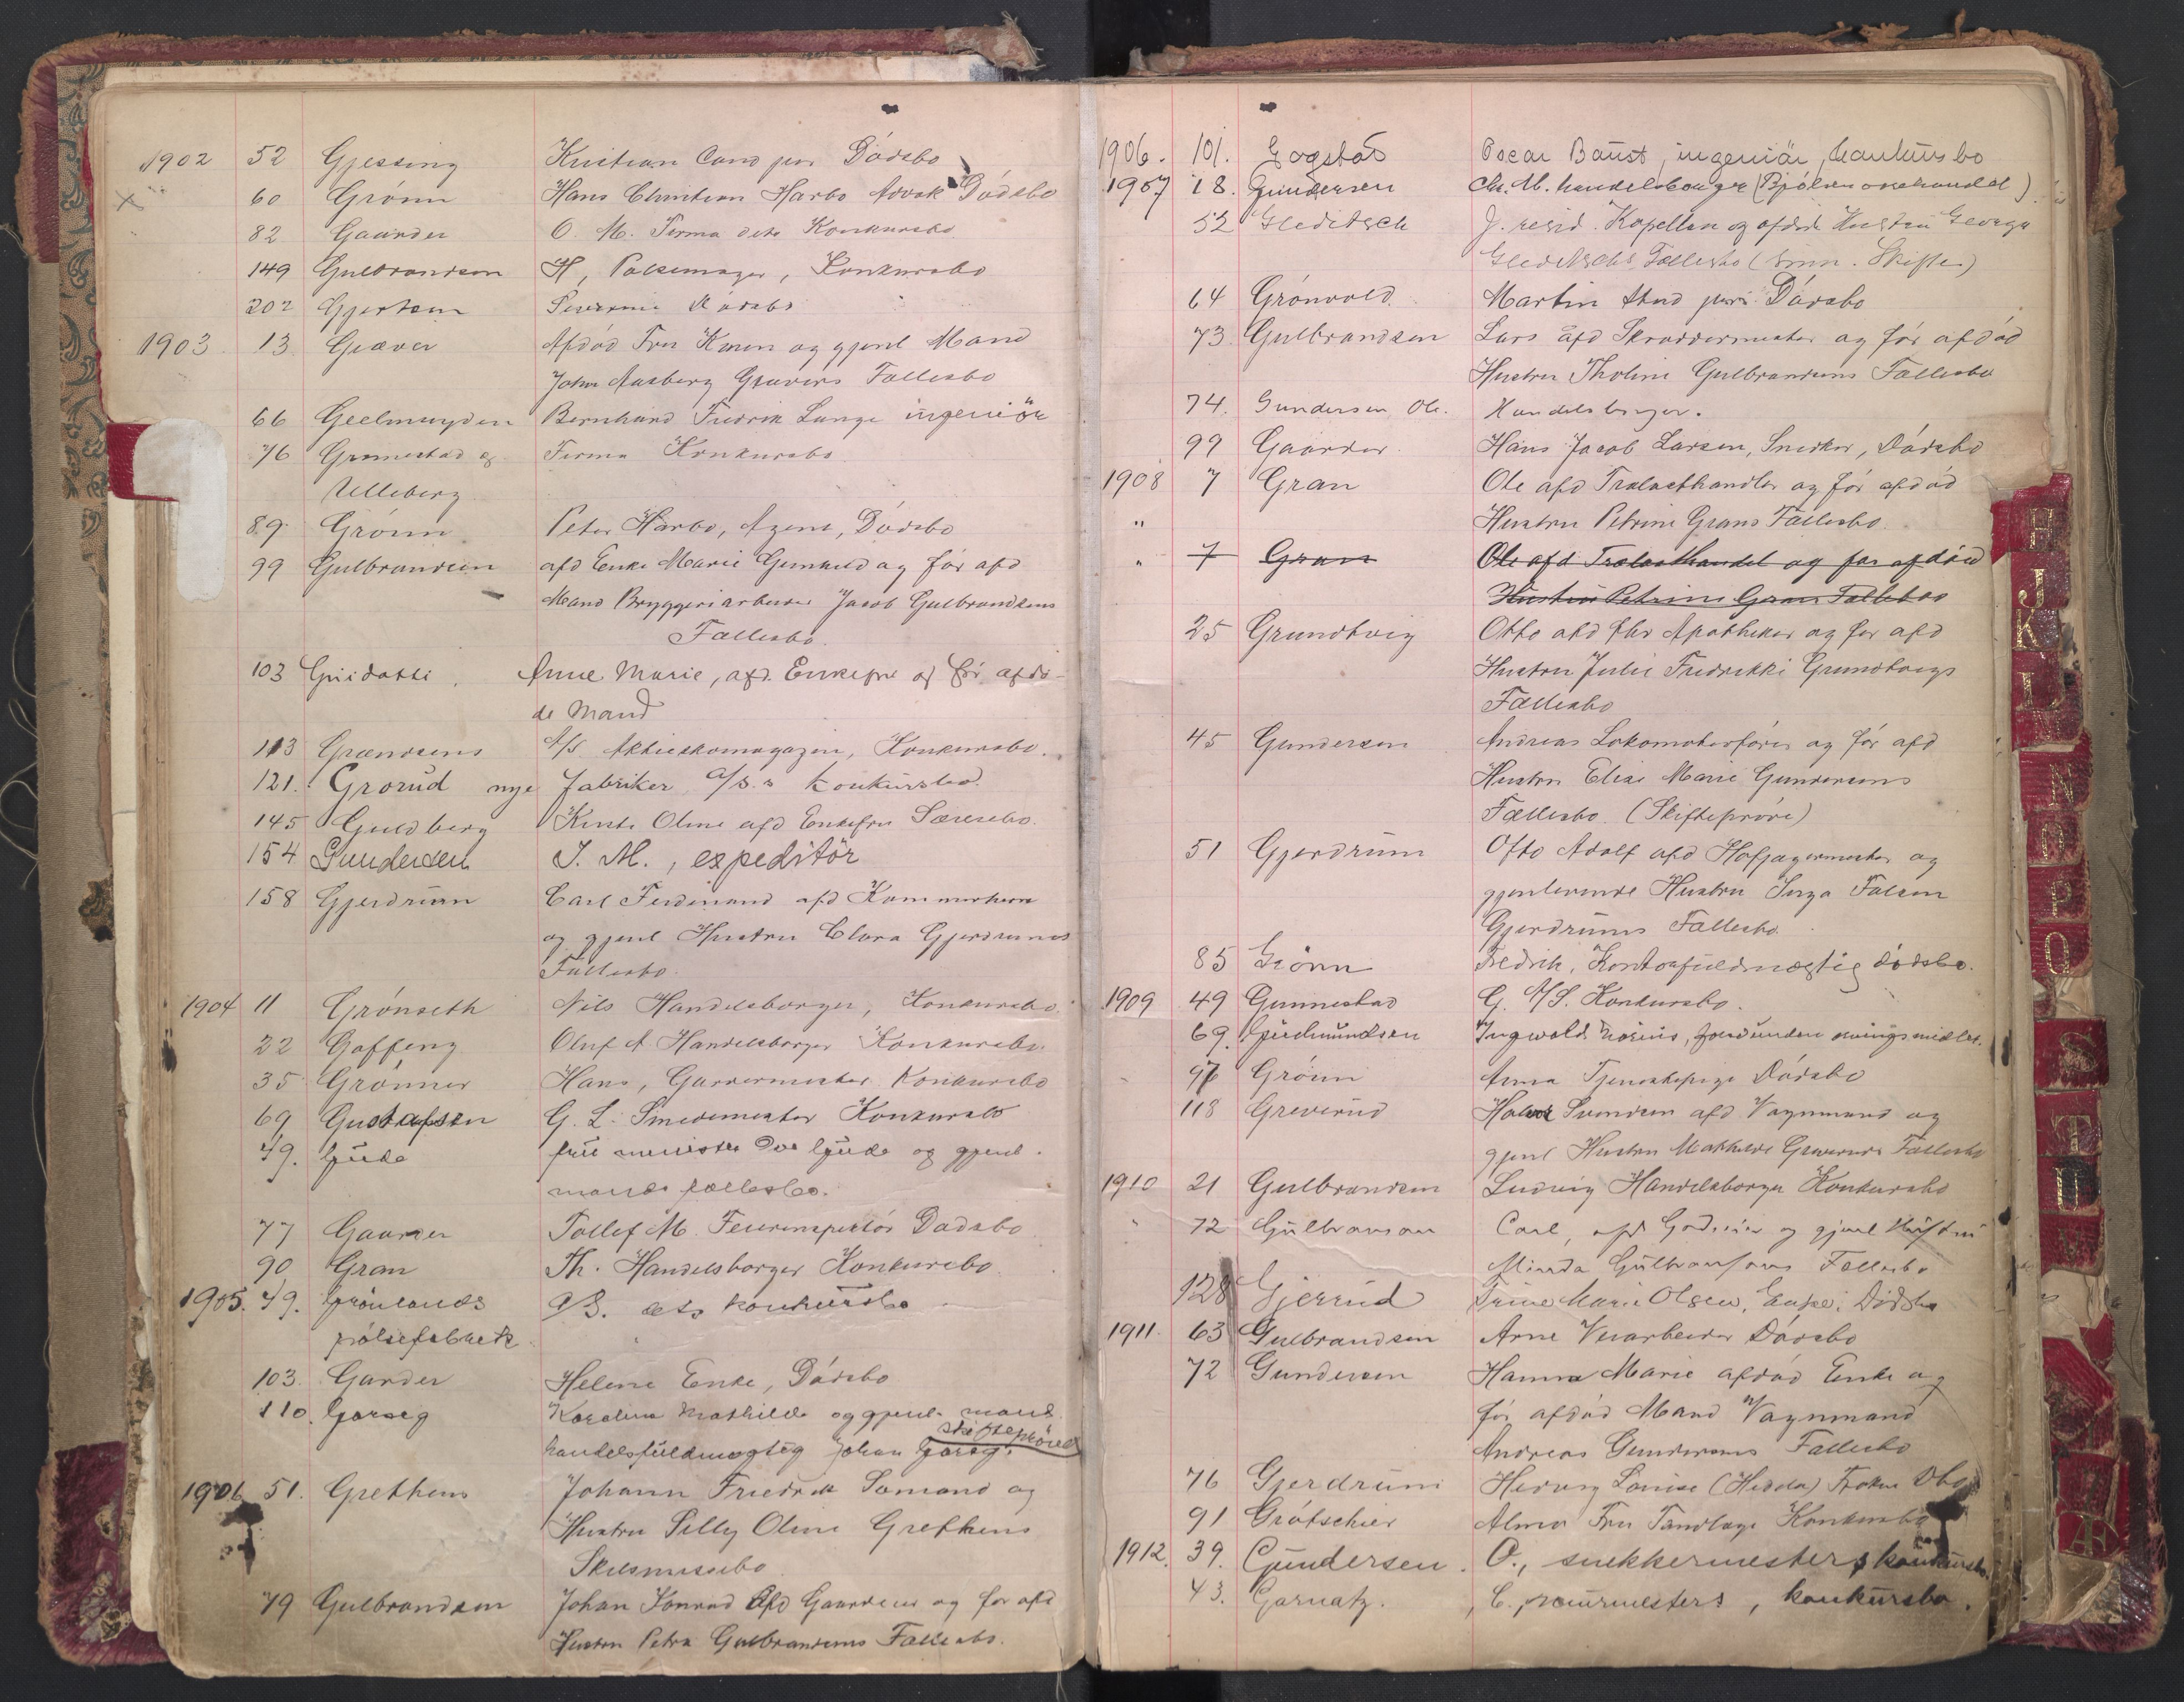 1902 52 Gjessing Kristian Cand jur Dödsbo
60 Grönn Hans Christian Harbo Advok Dödsbo
82 Gaarder O. M. Firma dets Konkursbo
149 Gulbrandsen H, Pølsemager, Konkursbo
202 Gjertsen Severine Dödsbo
1903 13 Græver Afdöd Fru Karen og gjenl Mand
John Aasberg Grævers Fællesbo
66 Geelmuyden Bernhard Fredrik Lange ingeniör
76 Grannestad og Firma Konkursbo
Ulleberg
89 Grönn Peter Harbo, Agent, Dödsbo
99 Gulbrandsen afd Enke Marie Gunhild og för afd
Mand Bryggeriarbeider Jacob Gulbrandsens
Fællesbo
103 Anne Marie, afd. Enkefru og för afdö-
de Mand
113 Grændsens A/S Aktieskomagazin, Konkursbo.
121. Grorud nye fabriker A/S.s konkursbo.
145 Guldberg Kirste Oline afd Enkefru Særesbo.
154 Gundersen J. M., expeditör
158 Gjerdrum Carl Ferdinand afd Kammerherre
og gjenl Hustru Clara Gjerdrums
Fællesbo.
1904 11 Grönseth Nils Handelsborger, Konkursbo
22 Gaffeng Oluf A Handelsborger Konkursbo.
35 Grönner Hans, Garvermester Konkursbo
69 Gustafsen G. L. Smedemester Konkursbo
79. Gude frue minister Gude og gjenl.
mands fællesbo.
77 Gaarder Tollef M. Dödsbo
90 Gran Th. Handelsborger Konkursbo
1905. 79. Grönlands AS. dets konkursbo
pölsefabrik
103. Garder Helene Enke, Dödsbo
110. Garseg Karoline Mathilde og gjenl. mand
handelsfuldmægtig Johan Garseg. skifteprövet
1906 51. Grethens Johann Friedrich Somand og
Hustru Silly Oline Grethens
Skilsmissebo
79 Gulbrandsen Johan Konrad Afd Gaardeier og för afd
Hustru Petra Gulbrandsens Fællesbo.
1906. 101. Gogstad Oscar Baust, ingeniör, konkursbo
1907 18. Gundersen Chr. M. handelsborger (Bjölsen ostehandel)
52 Gleditsch J. resid. Kapellan og afdøde Hustru Georga
Gleditschs Fællesbo (Skifte)
64 Grönvold Martin Stud juris Dödsbo
73 Gulbrandsen Lars afd Skræddermester og för afdöd
Hustru Tholine Gulbrandsens Fællesbo
74. Gundersen Ole. Handelsborger.
99 Gaarder Hans Jacob Larsen, Snedker, Dödsbo
1908 7 Gran Ole afd Trælasthandler og för afdöd
" Hustru Petrine Grans Fællesbo
" 7 Gran Ole afd Trælasthandel og för afdöd
Hustru Petrine Gran Fællesbo
25 Grundtvig Otto afd fhv Apotheker og for afd
Hustru Julie Fredrikke Grundtvigs
Fællesbo
45 Gundersen Andreas Lokomotivförer og för afd
Hustru Elise Marie Gundersens
Fællesbo (Skiftepröve)
51 Gjerdrum Otto Adolf afd Hofjægermester og
gjenlevende Hustru Inga Falsen
Gjerdrums Fællesbo
85 Grönn Fredrik, Kontorfuldmægtig dödsbo.
1909 49 Gunnestad G. A/S. Konkursbo.
69. Gudmundsen Ingwald
97 Grönn Anna Tjenestepige Dödsbo
118 Greverud Halvor Svendsen afd Vognmand og
gjenl Hustru Mathilde Greveruds Fællesbo
1910 21 Gulbrandsen Ludvig Handelsborger Konkursbo
" 72 Gulbranson Carl, afd Godseier og gjenl Hustru
Minda Gulbransons Fællesbo
128 Gjerrud Trine Marie Olsen, Enke, Dödsbo
1911 63 Gulbrandsen Arne Veiarbeider Dödsbo
72 Gundersen Hanna Marie afdöd Enke og
för afdöd Mand Vognmand
Andreas Gundersens Fællesbo
76 Gjerdrum Hedvig Louise (Hedda) Fröken Dbo
91 Grötschier Alma Fru Tandlæge Konkursbo
1912. 39. Gundersen. O., snekkermester, konkursbo.
43. Garnatz. C., murmesters, konkursbo.
H
J
K
L
N
O
P
Q
S
T
U
V
Æ